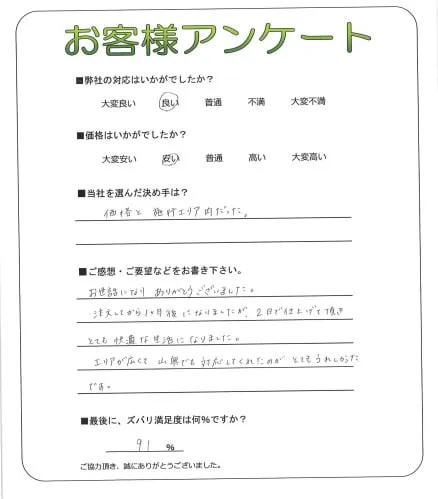 お客様アンケート
■弊社の対応はいかがでしたか?
大変良い 良い 普通 不満 大変不満
■価格はいかがでしたか?
大変安い 安い 普通 高い 大変高い
■当社を選んだ決め手は?
価格と 施行エリア内だった。
■ご感想・ご要望などをお書き下さい。
お世話になり ありがとうございました。
注文してから1ヶ月後になりましたが、2日で仕上げて頂き
とても快適な生活になりました。
エリアが広くて 山奥でも対応してくれたのが とてもうれしかった
です。
■最後に、ズバリ満足度は何%ですか?
91 %
ご協力頂き、誠にありがとうございました。